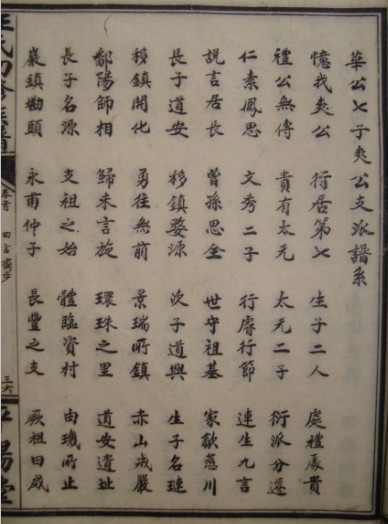 華公七子奭公支派譜系
憶我奭公 衍居第七 生子二人 處禮處貴
禮公無傳 貴有太元 太元二子 衍派分遷
仁素鳳思 文秀二子 行廉行節 連生九言
說言居長 曾孫思全 世守祖基 家歙慈川
長子道安 移鎮婺源 次子道興 生子名璉
移鎮開化 勇往無前 景瑞所鎮 赤山戒嚴
鄱陽師相 歸朱言旋 環珠之里 道安遺址
長子名源 支祖之始 體臨資村 由璣所止
巖鎮勘頭 永甫仲子 長豐之支 厥祖曰
卷首 四言
三六
陽堂